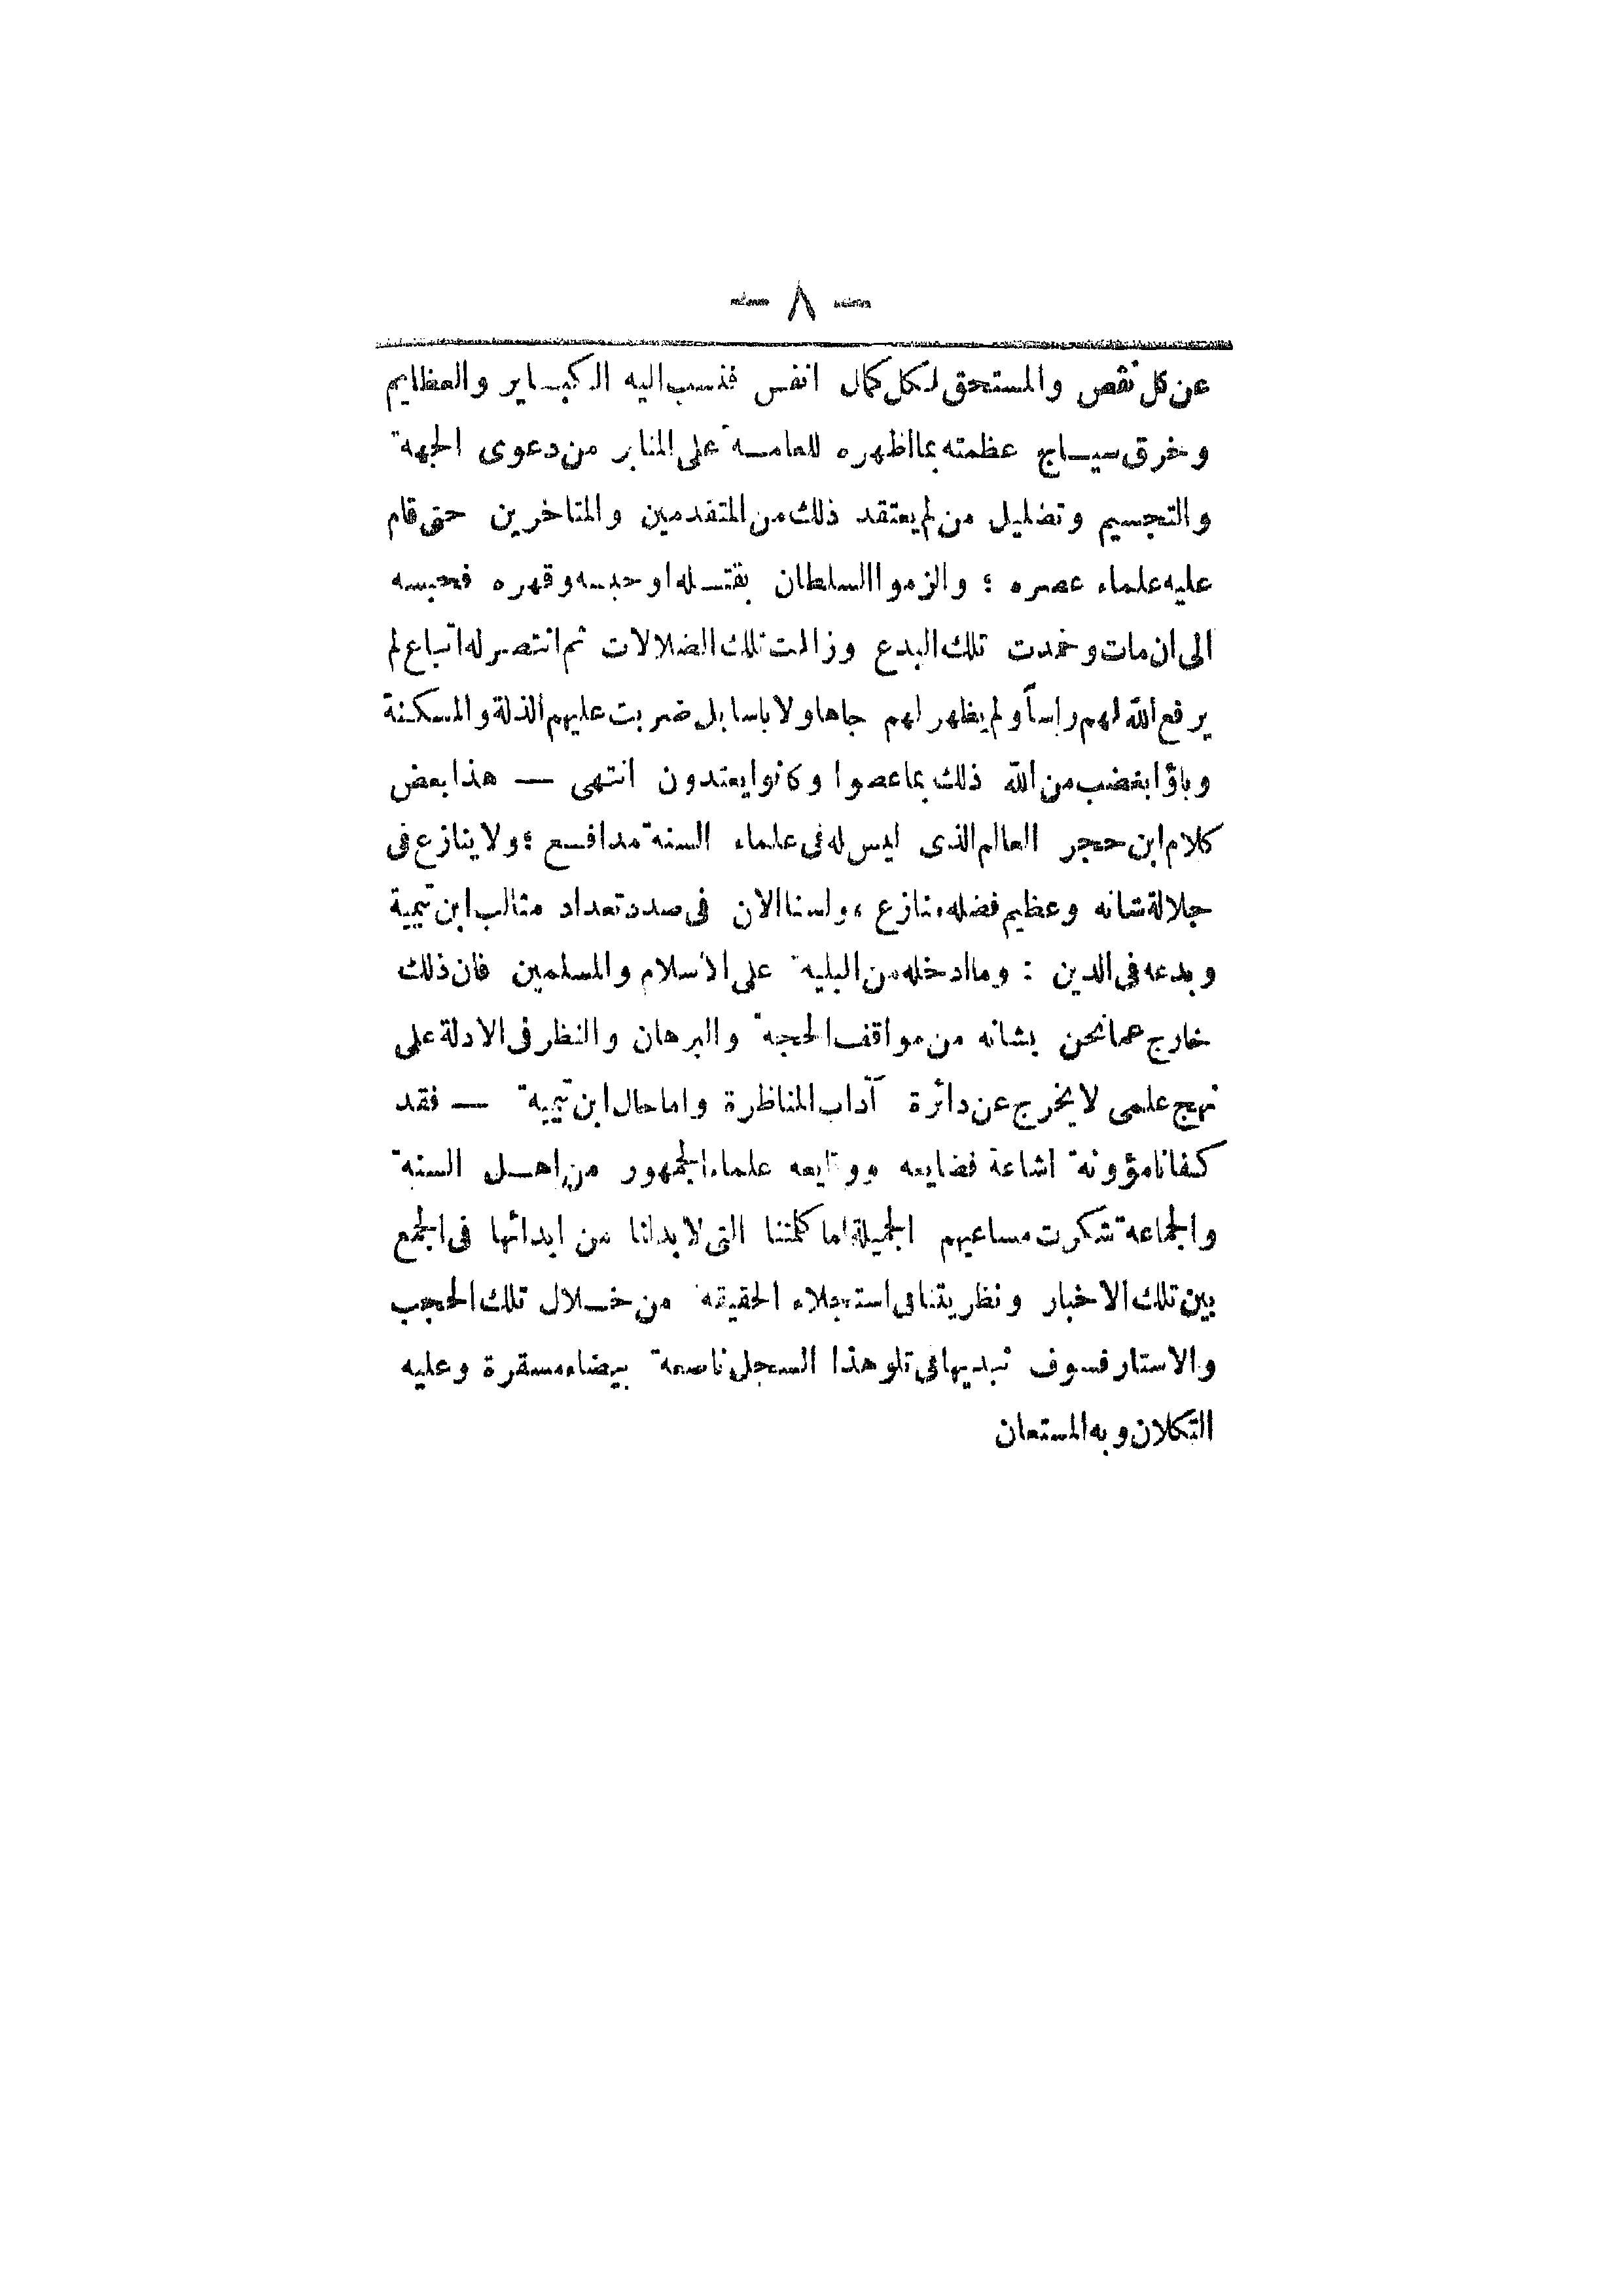 — ٨ —
عن كل نقص والمستحق لكل كمال انفس فنسب اليه الكبـاير والعظايم
وخرق سيـاج عظمته بما اظهره للعامـة على المنابر من دعوى الجهة
والتجسيم وتضليل من لم يعتقد ذلك من المتقدمين والمتاخرين حتى قام
عليه علماء عصره ؛ والزموا السلطان بقتـله او حبسه وقهره فحبسه
الى ان مات وخمدت تلك البدع وزالت تلك الضلالات ثم انتصر له اتباع لم
يرفع الله لهم راساً ولم يظهر لهم جاها ولا باسا بل ضربت عليهم الذلة والمسكنة
وباؤا بغضب من الله ذلك بما عصوا وكانوا يعتدون انتهى — هذا بعض
كلام ابن حجر العالم الذى ليس له فى علماء السنة مدافـع ؛ ولا ينازع فى
جلالة شانه وعظيم فضله منازع ، ولسنا الان فى صدد تعداد مثالب ابن تيمية
وبدعه فى الدين : وما ادخله من البلية على الاسلام والمسلمين فان ذلك
خارج عما نحن بشانه من مواقف الحجة والبرهان والنظر فى الادلة على
نهج علمى لا يخرج عن دائرة آداب المناظرة واما حال ابن تيمية — فقد
كفانا مؤونة اشاعة فضايعه ووقايعه علماء الجمهور من اهـل السنة
والجماعة شكرت مساعيهم الجميلة اما كلمتنا التى لا بد لنا من ابدائها فى الجمع
بين تلك الاخبار ونظريتنا فى استجلاء الحقيقة من خـلال تلك الحجب
والاستار فسوف نبديها فى تلو هذا السجل ناصعة بيضاء مسفرة وعليه
التكلان وبه المستعان